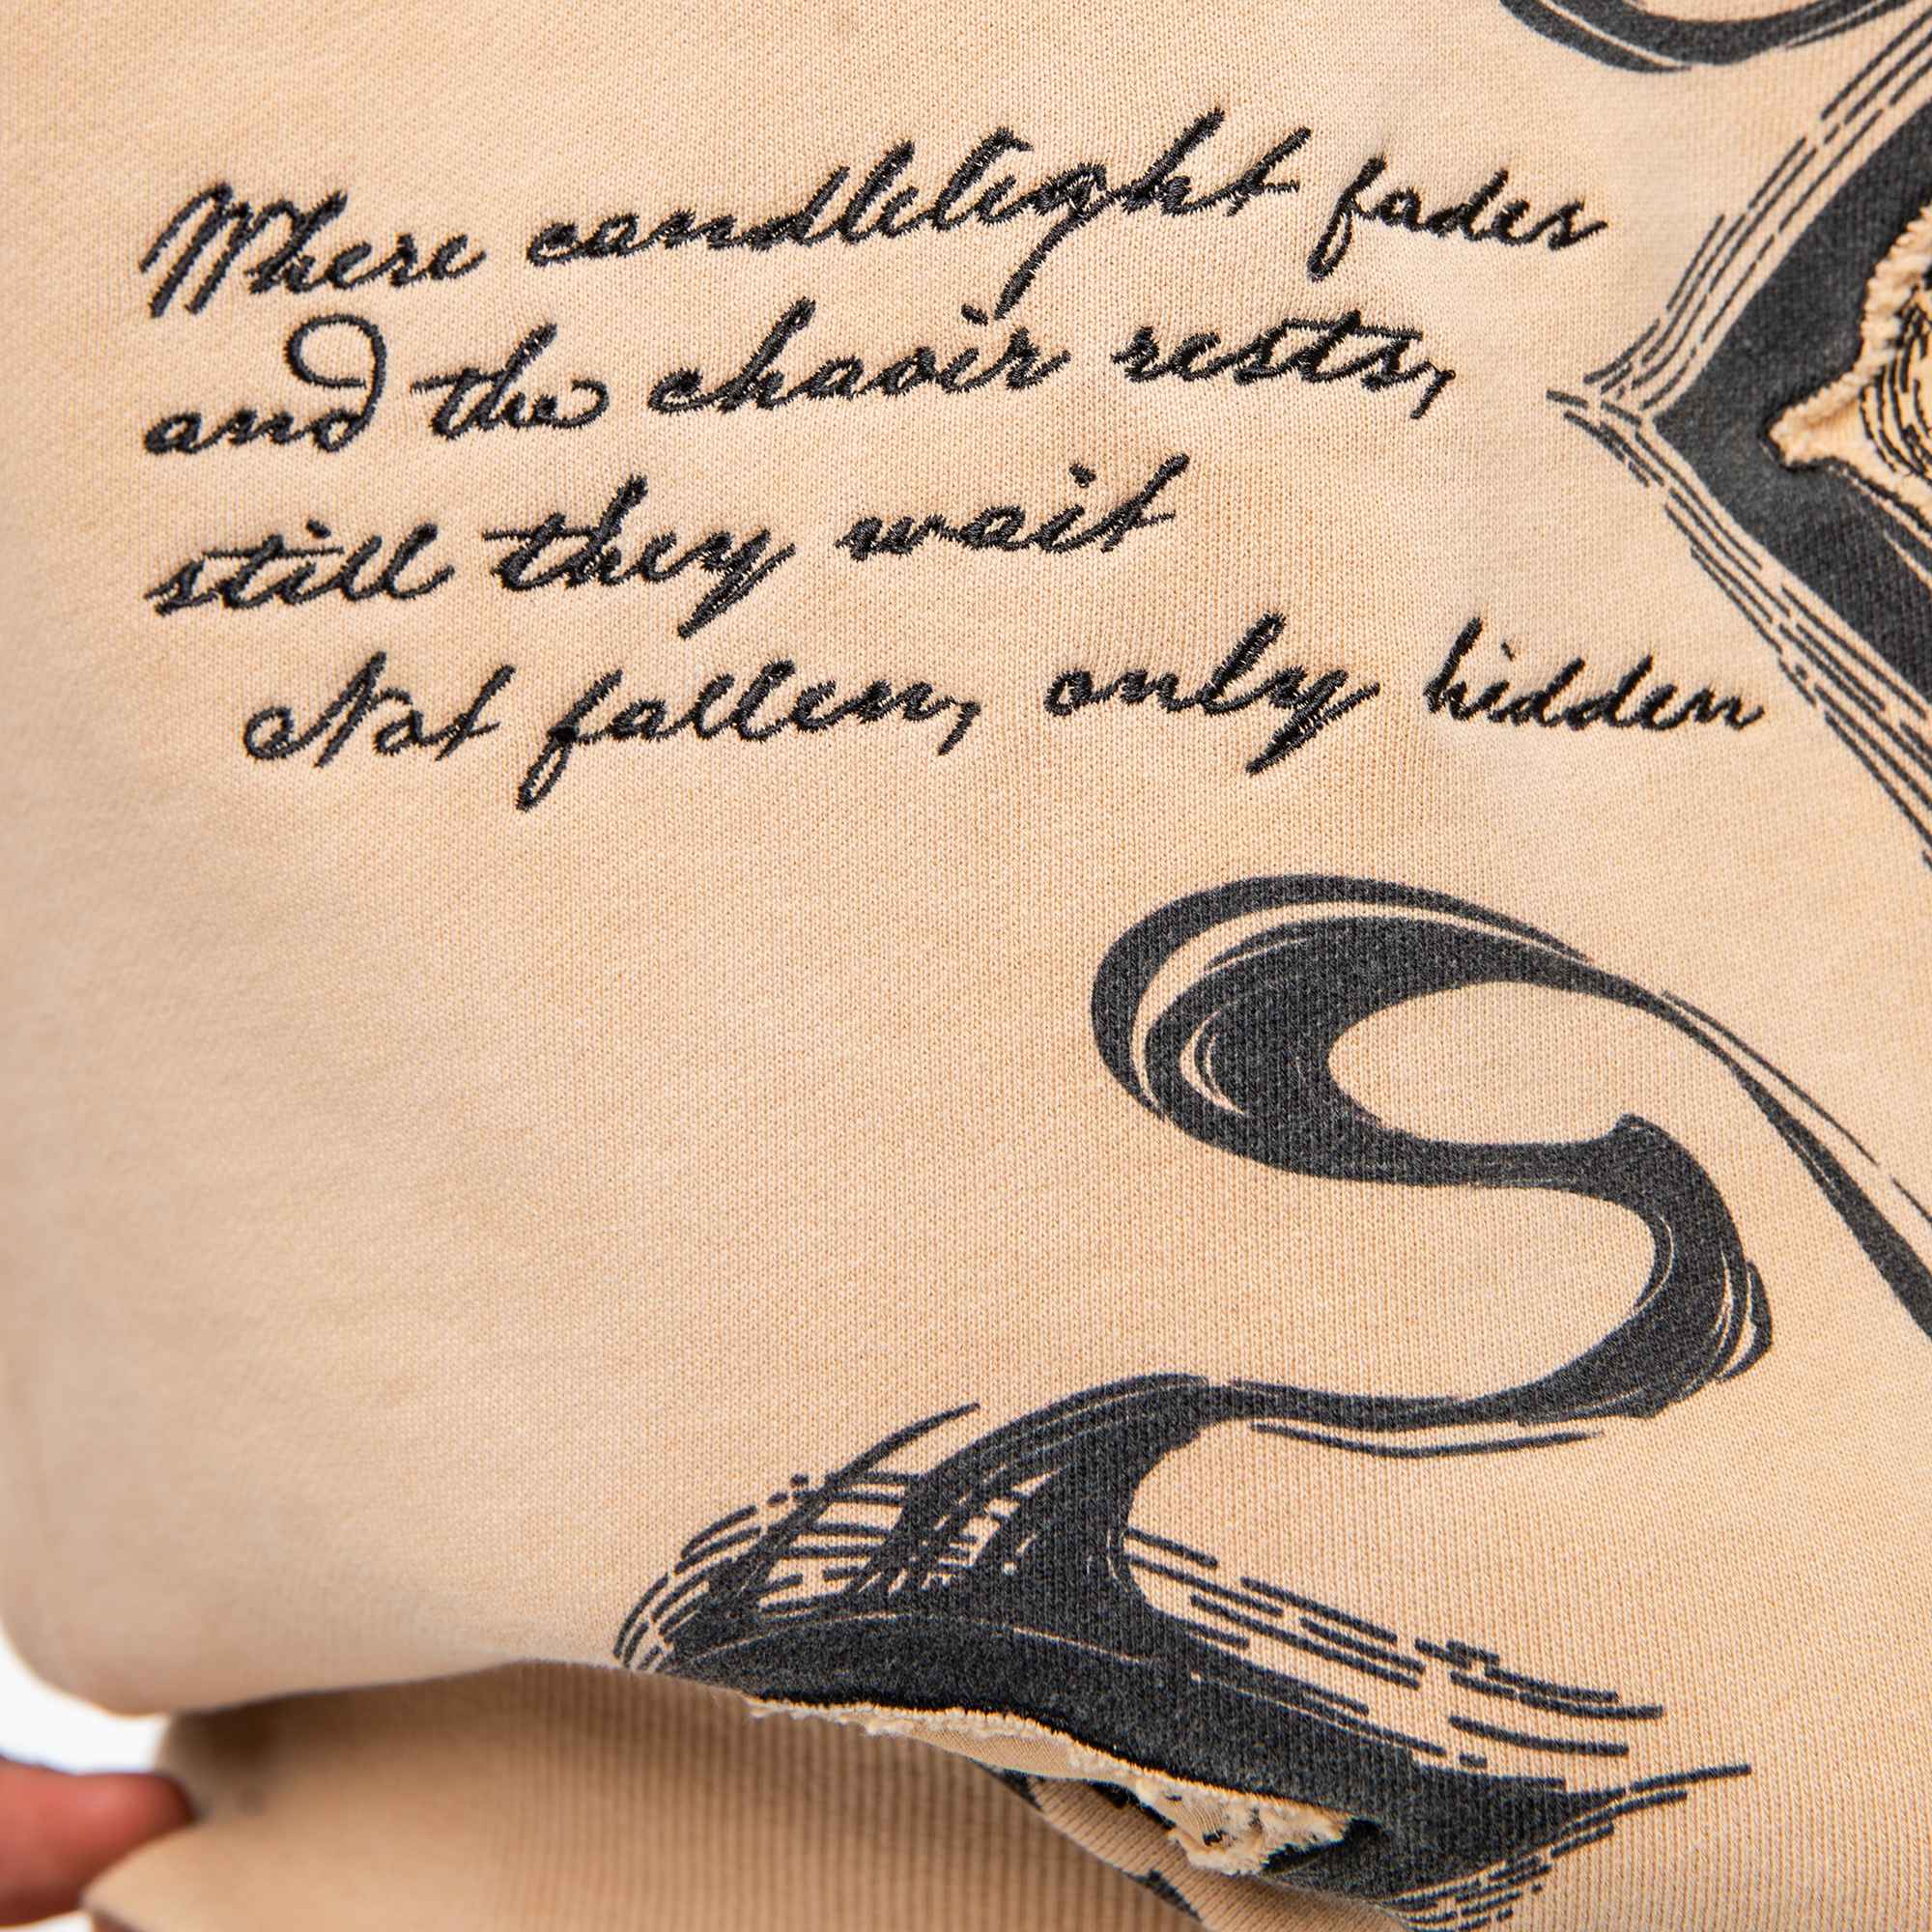 Where candlelight fades
and the chaoir rests,
still they wait
Not fallen, only hidden